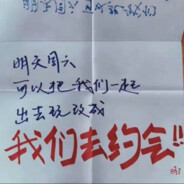 明天周六
可以把我们一起
出去玩改成
我们去约会!!